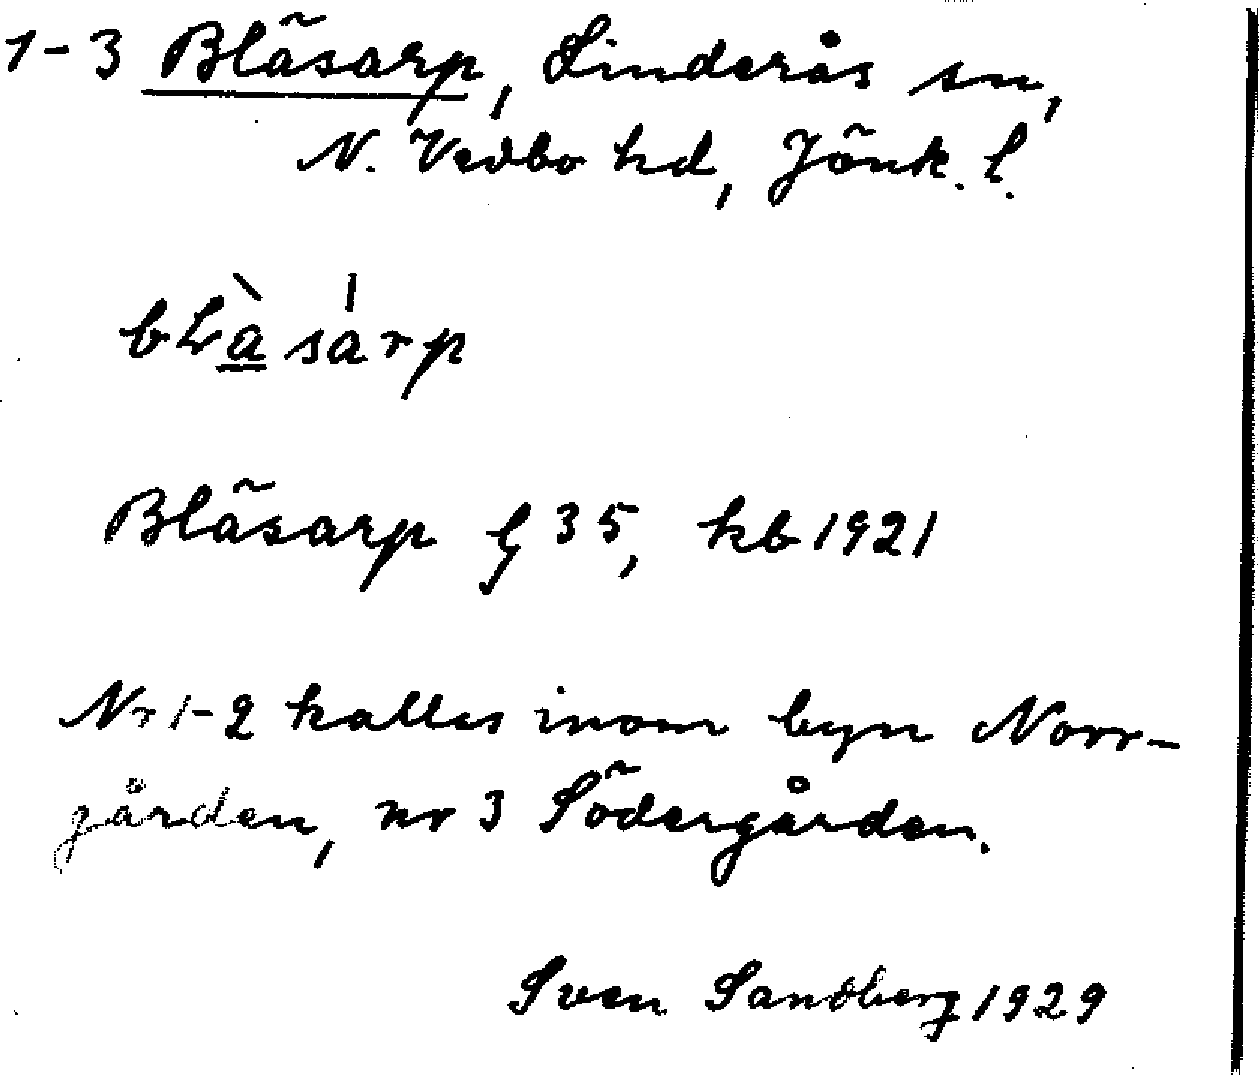 1-3 Bläsarp, Linderås sn,
N. Vedbo hd, Jönk. l.
blàsárp
Bläsarp g 35, kb 1921
Nr 1-2 kallas inom byn Norr-
gården, nr 3 Södergården.
Sven Sandberg 1929